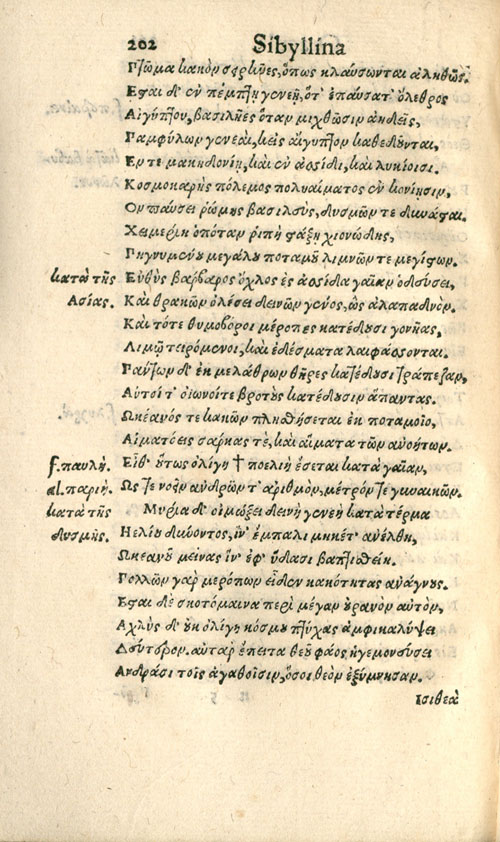 202 Sibyllina
Πτῶμα κακὸν στερκτῆρες, ὅπως κλαύσωνται ἀληθῶς.
Ἔσται δ' ἐν πέμπτῃ γενεῇ, ὅτ' ἐπαύσατ' ὄλεθρος
Αἰγύπτου, βασιλῆες ὅταν μιχθῶσιν ἀναιδεῖς,
Παμφύλων γενεαὶ, κεἰς αἴγυπτον καθεδοῦνται,
Ἔν τε μακηδονίῃ, καὶ ἐν ἀσίδι, καὶ λυκίοισι.
Κοσμομανὴς πόλεμος πολυαίματος ἐν κονίῃσιν,
Ὃν παύσει ῥώμης βασιλεὺς, δυσμῶν τε δυνάσται.
Χειμερίη ὁπόταν ῥιπὴ στάξῃ χιονώδης,
Πηγνυμένου μεγάλου ποταμοῦ λιμνῶν τε μεγίστων.
κατὰ τῆς Εὐθὺς βάρβαρος ὄχλος ἐς ἀσίδα γαῖαν ὁδεύσει,
Ἀσίας. Καὶ θρακῶν ὀλέσει δεινῶν γένος, ὡς ἀλαπαδνόν.
Καὶ τότε θυμοβόροι μέροπες κατέδουσι γονῆας,
Λιμῷ τειρόμενοι, καὶ ἐδέσματα λαιφάξονται.
Πάντων δ' ἐκ μελάθρων θῆρες κατέδουσι τράπεζαν,
Αὐτοί τ' οἰωνοί τε βροτοὺς κατέδουσιν ἅπαντας.
Ὠκεανός τε κακῶν πληθήσεται ἐκ ποταμοῖο,
Αἱματόεις σάρκας τε, καὶ αἵματα τῶν ἀνοήτων.
f. παυλή. Εἶθ' οὕτως ὀλίγη † ποελιὴ ἔσεται κατὰ γαῖαν,
al. παριή. Ὥς τε νοεῖν ἀνδρῶν τ' ἀριθμὸν, μέτρόν τε γυναικῶν.
κατὰ τῆς Μυρία δ' οἰμώξει δεινὴ γενεὴ κατὰ τέρμα
δυσμῆς. Ἠελίου δύνοντος, ἵν' ἔμπαλι μηκέτ' ἀνέλθῃ,
Ὠκεανοῦ μείνας ἵν' ἐφ' ὕδασι βαπτισθείη.
Πολλῶν γὰρ μερόπων εἶδεν κακότητας ἀνάγνους.
Ἔσται δὲ σκοτόμαινα περὶ μέγαν οὐρανὸν αὐτόν,
Ἀχλὺς δ' οὐκ ὀλίγη κόσμου πτύχας ἀμφικαλύψει
Δεύτερον. αὐτὰρ ἔπειτα θεοῦ φάος ἡγεμονεύσει
Ἀνδράσι τοῖς ἀγαθοῖσιν, ὅσοι θεὸν ἐξύμνησαν.
Ἰσι θεὰ